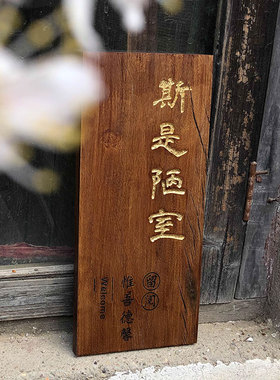 斯是陋室
惟善德馨
Welcome